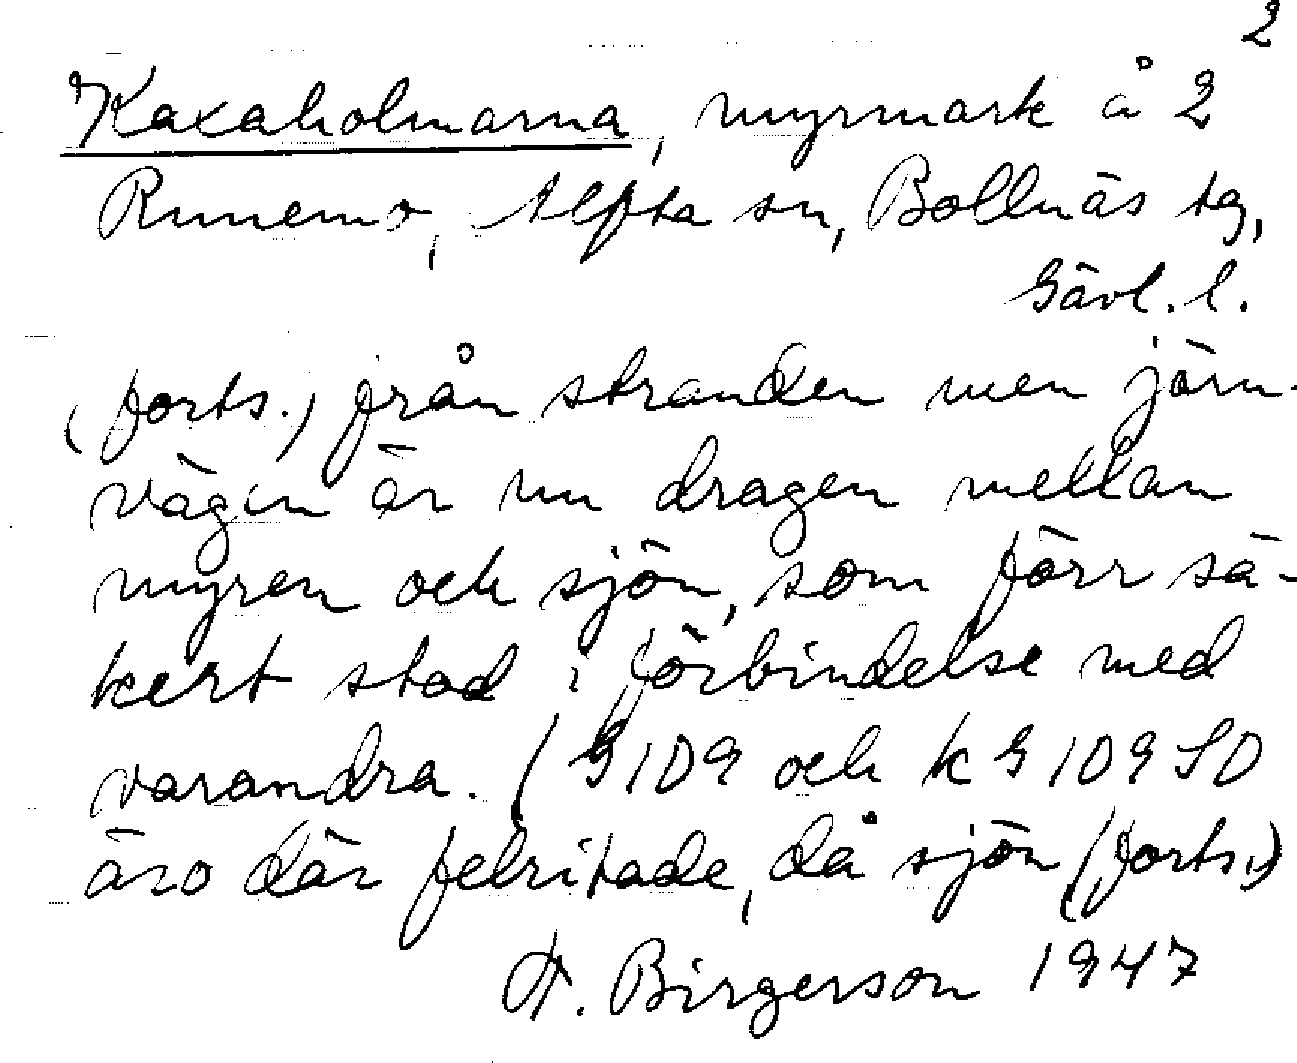 2
Kaxaholmarna, myrmark å 2
Runemo, Alfta sn, Bollnäs tg,
Gävl. l.
(forts.) från stranden men järn-
vägen är nu dragen mellan
myren och sjön, som förr sä-
kert stod i förbindelse med
varandra. (G 109 och k G 109 SO
äro där felritade, då sjön (forts.)
F. Birgerson 1947